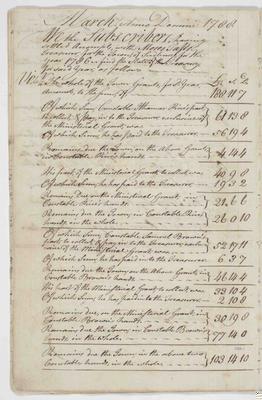 March, Anno Domini 1788
We the Subscribers, having
settled Accounts with Moses
Treasurer for the Town of for the
year 1786 find the State of the Treasury
for said Year, as follows
The whole of the Town Grants, for sd. Year £ s d
Amounts, to the sum of
Of which Sum Constable Thomas part
to collect & pay, in to the Treasurer exclusive of 61 13 8
the Ministerial Grant, was
Of which Sum he has paid to the Treasurer 56 19 4
Remains due the Town, on the Above Grant
in Constable hands 4 14 4
His part of the Ministerial Grant to collect was 40 9 8
Of which Sum, he has paid to the Treasurer 19 3 2
Remains due on the Ministerial Grant, in
Constable hands 21 6 6
Remains due the Town, in Constable
hands in the whole 26 0 10
Of which Sum Constable Samuel Brown's
part to collect & pay in to the Treasurer, exclu- 52 17 11
sive of the Ministerial Grant was
Of which Sum, he has paid in to the Treasurer 6 3 7
Remains due the Town on the above Grant, in
Constable Brown's hands 46 14 4
His part of the Ministerial Grant to collect was 33 10 4
Of which Sum, he has paid in to the Treasurer 2 10 8
Remains due, on the Ministerial Grant in
Constable Brown's hands 30 19 8
Remains due the Town in Constable Brown's
hands in the whole 77 14 0
Remains due the Town in the above two
Constables hands, in the whole 103 14 10